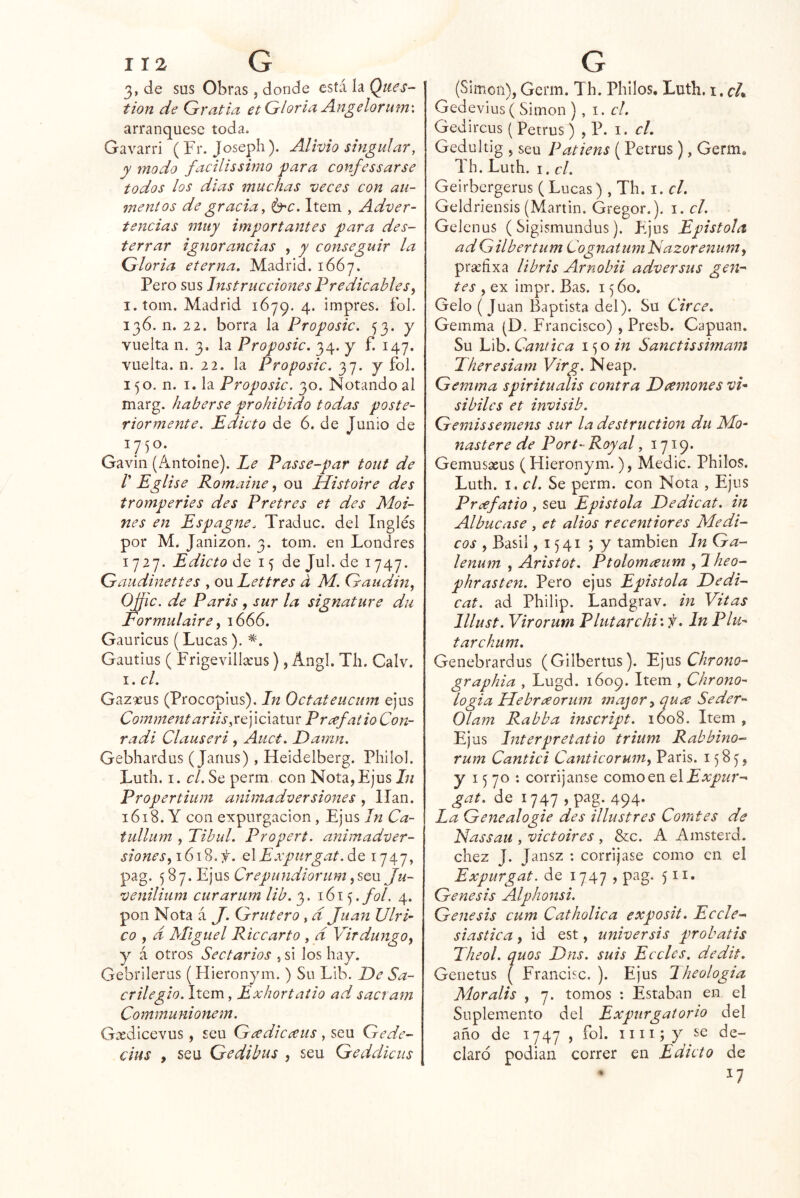 112 G
3, de sus Obras, donde está la Ques-
tion de Gratia et Gloria Angelorum:
arranquese toda.
Gavarri (Fr. Joseph). Alivio singular,
y modo facilissimo para confessarse
todos los dias muchas veces con au-
mentos de gracia, &c. Item, Adver-
tencias muy importantes para des-
terrar ignorancias, y conseguir la
Gloria eterna. Madrid. 1667.
Pero sus Instrucciones Predicables,
1. tom. Madrid 1679. 4. impres. fol.
136. n. 22. borra la Proposic. 53. y
vuelta n. 3. la Proposic. 34. y f. 147.
vuelta. n. 22. la Proposic. 37. y fol.
150. n. 1. la Proposic. 30. Notando al
marg. haberse prohibido todas poste-
riormente. Edicto de 6. de Junio de
1750.
Gavin (Antoine). Le Passe-par tout de
l' Eglise Romaine, ou Histoire des
tromperies des Pretres et des Moi-
nes en Espagne. Traduc. del Inglés
por M. Janizon. 3. tom. en Londres
1727. Edicto de 15 de Jul. de 1747.
Gaudinettes, ou Lettres à M. Gaudin,
Offic. de Paris, sur la signature du
Formulaire, 1666.
Gauricus (Lucas). *.
Gautius (Frigevillæus), Angl. Th. Calv.
1. cl.
Gazæus (Procopius). In Octateucum ejus
Commentariis, rejiciatur Præfatio Con-
radi Clauseri, Auct. Damn.
Gebhardus (Janus), Heidelberg. Philol.
Luth. 1. cl. Se perm con Nota, Ejus In
Propertium animadversiones, Han.
1618. Y con expurgacion, Ejus In Ca-
tullum, Tibul. Propert. animadver-
siones, 1618. ꝟ. el Expurgat. de 1747,
pag. 587. Ejus Crepundiorum, seu Ju-
venilium curarum lib. 3. 1615. fol. 4.
pon Nota á J. Grutero, á Juan Ulri-
co, á Miguel Riccarto, á Virdungo,
y á otros Sectarios, si los hay.
Gebrilerus (Hieronym.) Su Lib. De Sa-
crilegio. Item, Exhortatio ad sacram
Communionem.
Gædicevus, seu Gædicæus, seu Gede-
cius, seu Gedibus, seu Geddicus
G
(Simon), Germ. Th. Philos. Luth. 1. cl.
Gedevius (Simon), 1. cl.
Gedircus (Petrus), P. 1. cl.
Gedultig, seu Patiens (Petrus), Germ.
Th. Luth. 1. cl.
Geirbergerus (Lucas), Th. 1. cl.
Geldriensis (Martin. Gregor.). 1. cl.
Gelenus (Sigismundus). Ejus Epistola
ad Gilbertum Cognatum Nazorenum,
præfixa libris Arnobii adversus gen-
tes, ex impr. Bas. 1560.
Gelo (Juan Baptista del). Su Circe.
Gemma (D. Francisco), Presb. Capuan.
Su Lib. Cantica 150 in Sanctissimam
Theresiam Virg. Neap.
Gemma spiritualis contra Dæmones vi-
sibiles et invisib.
Gemissemens sur la destruction du Mo-
nastere de Port-Royal, 1719.
Gemusæus (Hieronym.), Medic. Philos.
Luth. 1. cl. Se perm. con Nota, Ejus
Præfatio, seu Epistola Dedicat. in
Albucase, et alios recentiores Medi-
cos, Basil, 1541; y tambien In Ga-
lenum, Aristot. Ptolomæum, Theo-
phrasten. Pero ejus Epistola Dedi-
cat. ad Philip. Landgrav. in Vitas
Illust. Virorum Plutarchi: ꝟ. In Plu-
tarchum.
Genebrardus (Gilbertus). Ejus Chrono-
graphia, Lugd. 1609. Item, Chrono-
logia Hebræorum major, quæ Seder-
Olam Rabba inscript. 1608. Item,
Ejus Interpretatio trium Rabbino-
rum Cantici Canticorum, Paris. 1585,
y 1570: corrijanse como en el Expur-
gat. de 1747, pag. 494.
La Genealogie des illustres Comtes de
Nassau, victoires, &c. A Amsterd.
chez J. Jansz: corrijase como en el
Expurgat. de 1747, pag. 511.
Genesis Alphonsi.
Genesis cum Catholica exposit. Eccle-
siastica, id est, universis probatis
Theol. quos Dns. suis Eccles. dedit.
Genetus (Francisc.). Ejus Theologia
Moralis, 7. tomos: Estaban en el
Suplemento del Expurgatorio del
año de 1747, fol. 1111; y se de-
claró podian correr en Edicto de
17